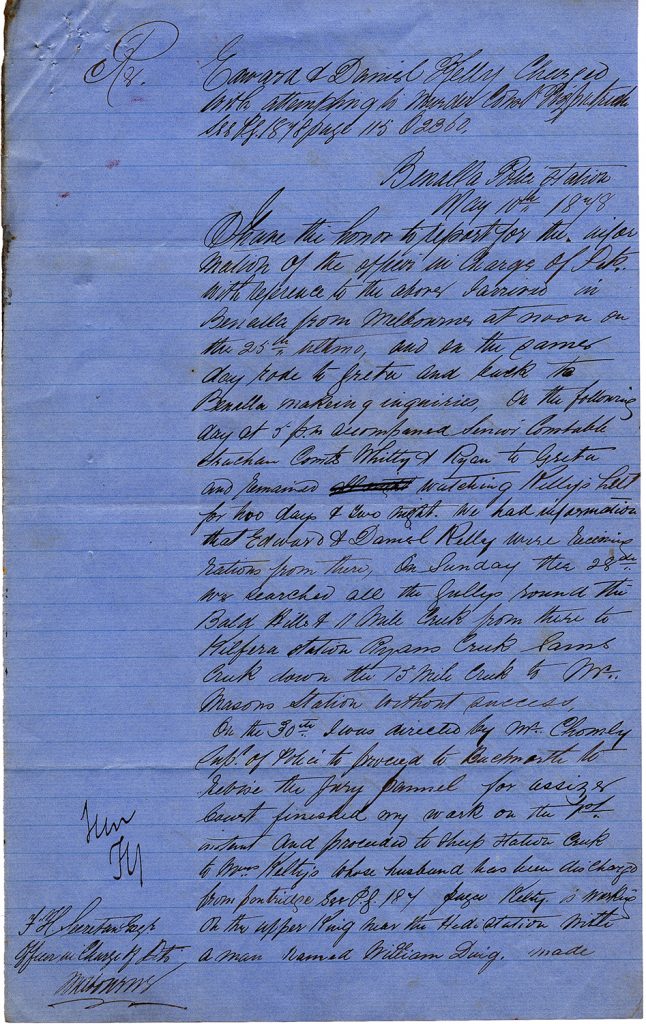 Re.
Edward & Daniel Kelly Charged
with attempting to Murder Const Fitzpatrick
See P.G. 1878 page 115 O2360.
Benalla Police Station
May 10th 1878
I have the honor to report for the infor
mation of the officer in Charge of Dets.
with reference to the above I arrived in
Benalla from Melbourne at noon on
the 25th ultimo, and on the same
day rode to Greta and back to
Benalla making inquiries, On the following
day at 5 p.m accompanied Senior Constable
Strachan Consts Whitty & Ryan to Greta
and remained watching Kelly's hut
for two days & two night. We had information
that Edward & Daniel Kelly were receiving
rations from there, On Sunday the 28th
we searched all the gullys round the
Bald Hills & 11 Mile Creek from there to
Kilfera Station Ryans Creek Sams
Creek down the 15 Mile Creek to Mr.
Masons Station without success.
On the 30th I was directed by Mr. Chomly
Supt. of Police to proceed to Beechworth to
revise the Jury pannel for assizes
Court finished my work on the 1st.
instant And proceeded to Sheep Station Creek
to Mrs Kelty's whose husband has been discharged
from pentridge See P.G. 187 page Kelty is working
on the upper King near the Hedi station with
a man named William Daig. made
F H Secretan Esqr
Officer in Charge of Dets
Melbourne